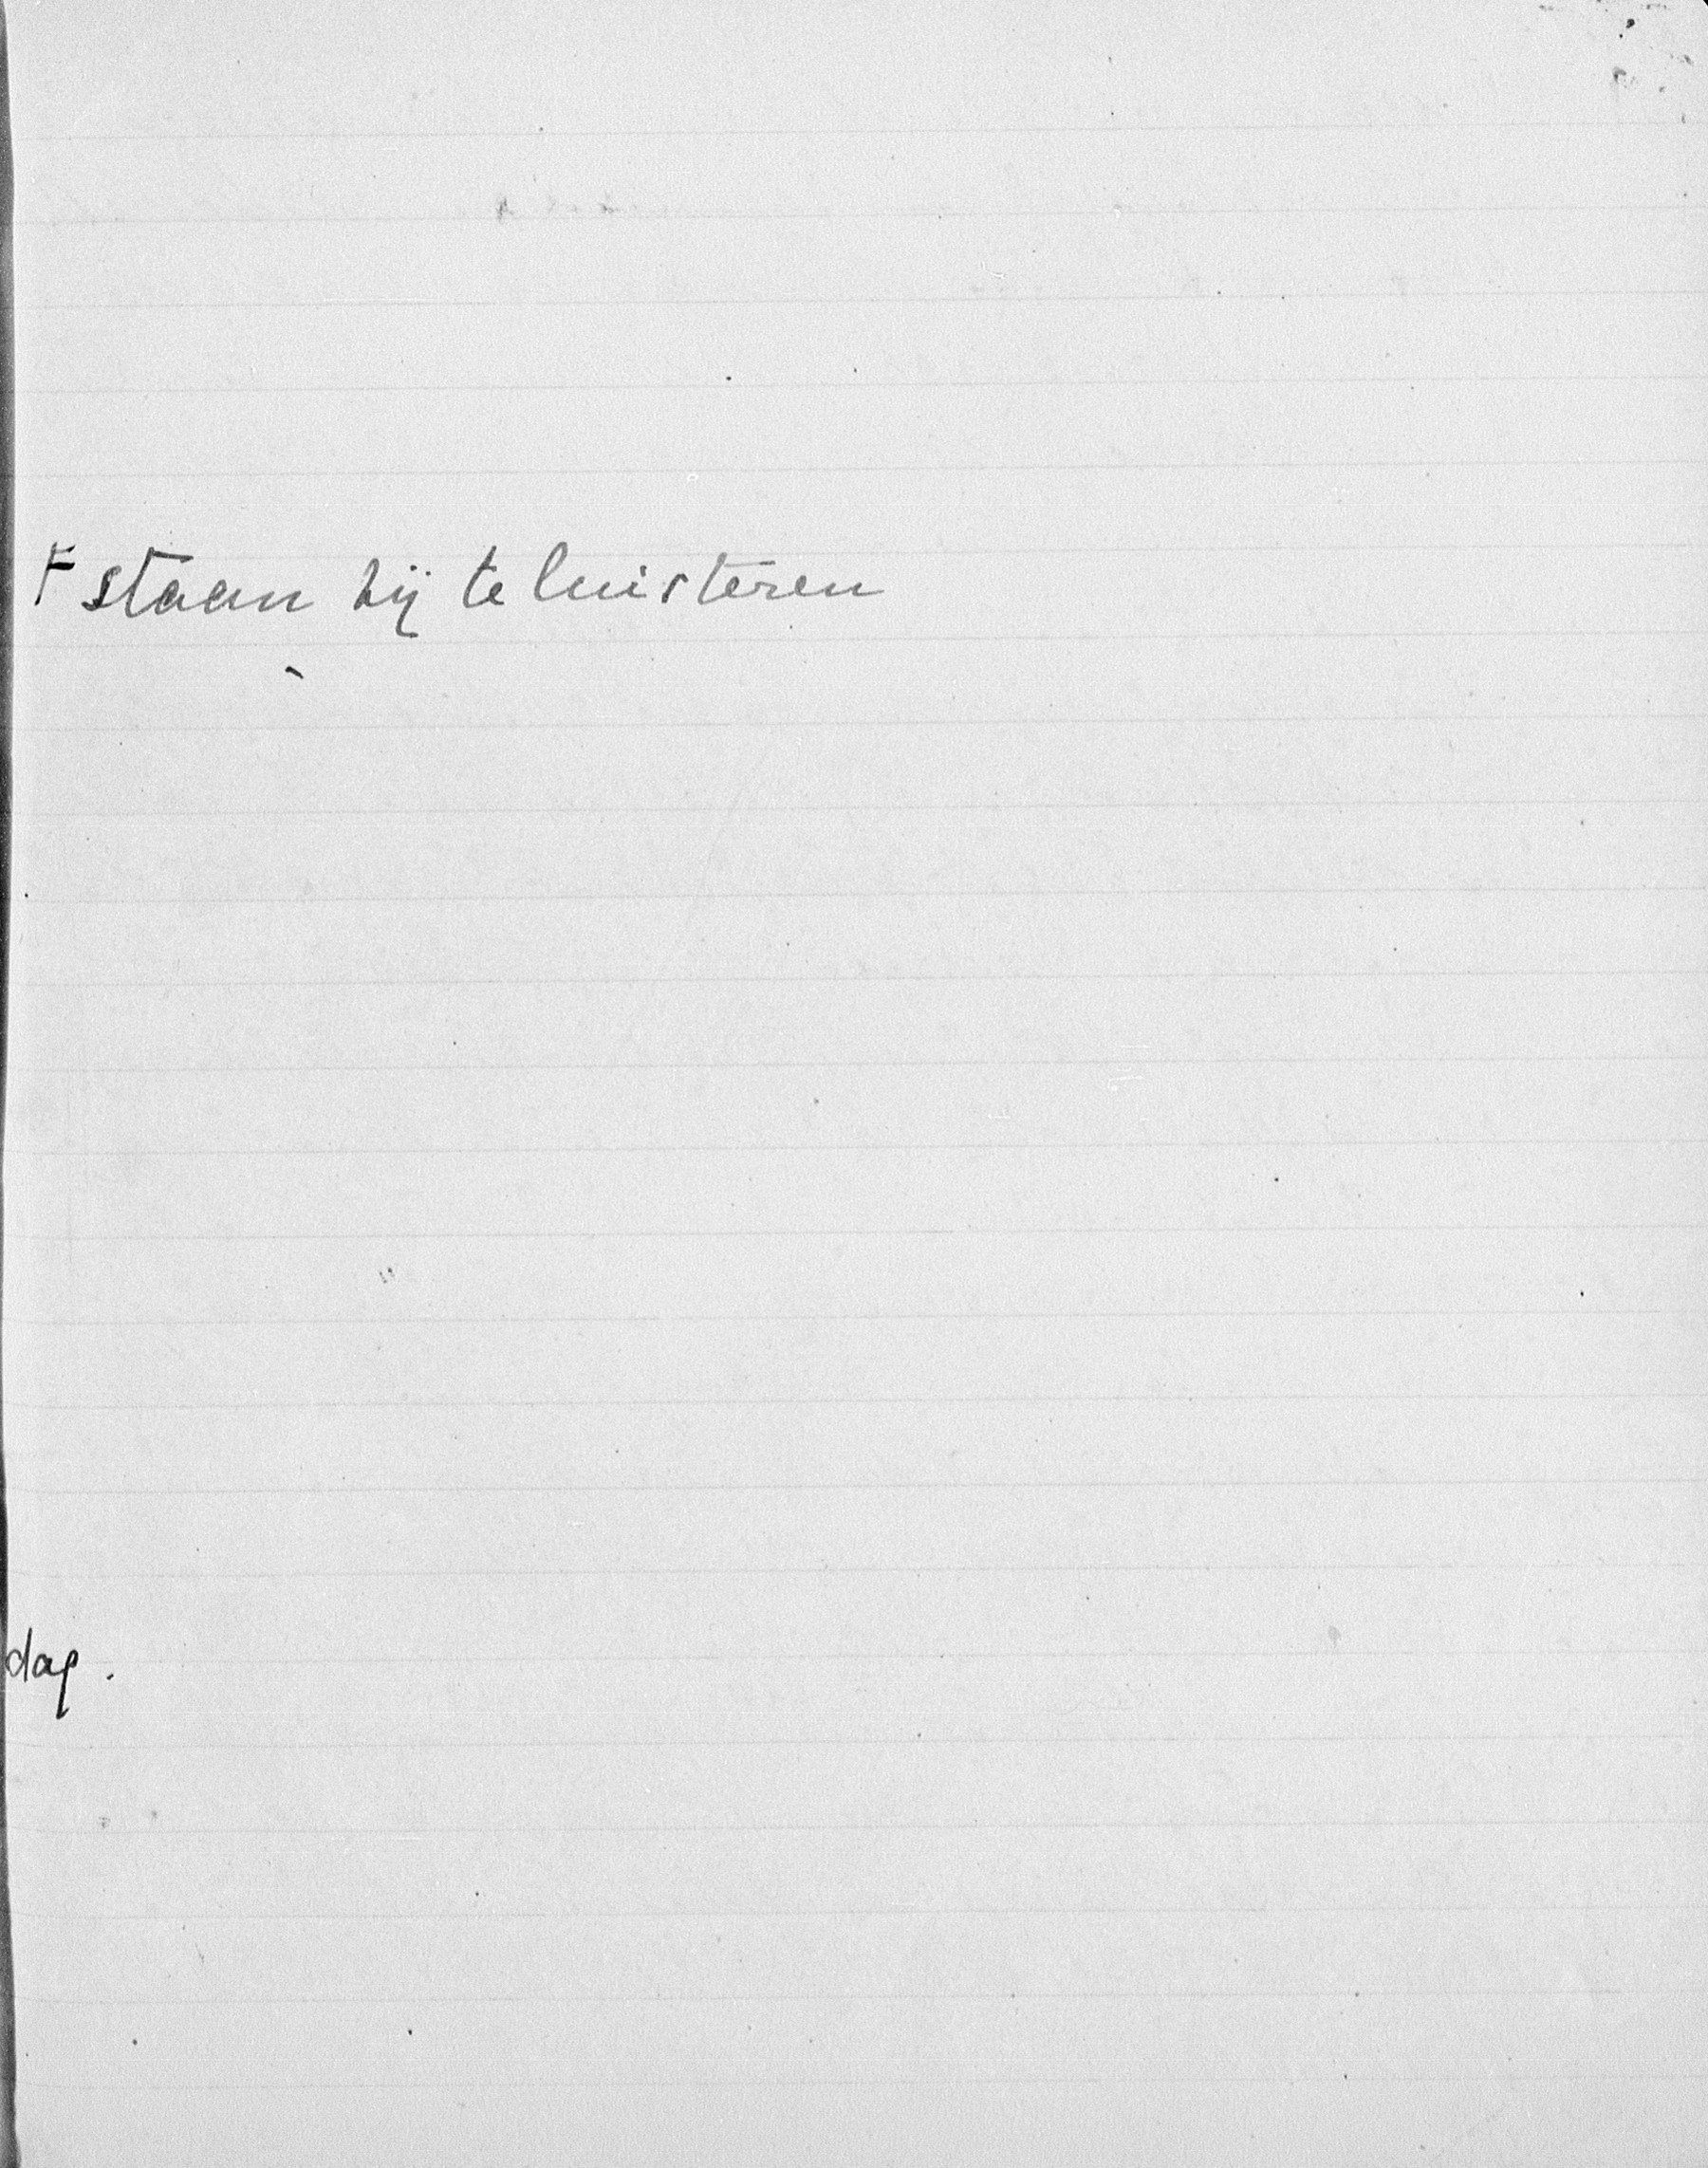 Ꞙ staan zij te luisteren
dag.